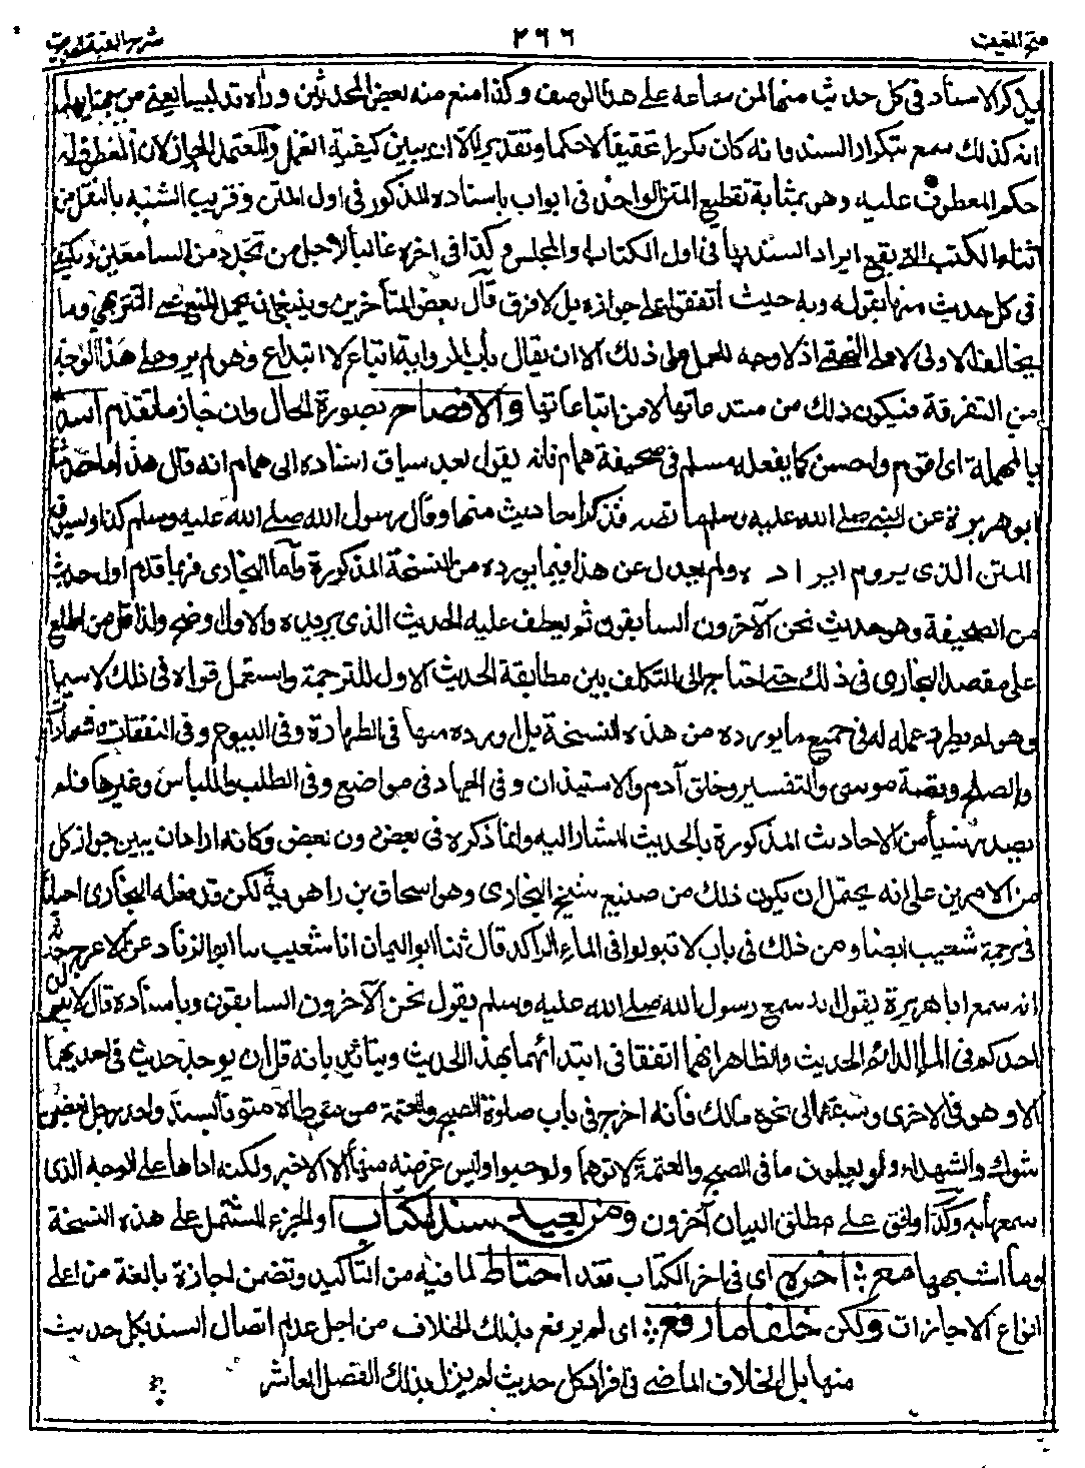 فتح المغيث ٢٦٦ شرح الفية الحديث
يذكر الاسناد في كل حديث منها لمن سماعه على هذا الوصف وكذا منع منه بعض المحدثين وراه تدليسا يعني من يوهم
انه كذلك سمع بتكرار السند وانه كان مكررا تحقيقا لا حكما وتقديرا الا ان يبين كيفية العمل والمعتمد الجواز لان المعطوف له
حكم المعطوف عليه وهو بمثابة تقطيع المتن الواحد في ابواب باسناده المذكور في اول المتن وقريب الشبه بالنقل من
اثناء الكتب التي يقع ايراد السند بها في اول الكتاب او المجلس وكذا في اخره غالبا لاجل من تجدد من السامعين ويكتفى
في كل حديث منها بقوله وبه حيث اتفقوا على جوازه بل لا فرق قال بعض المتأخرين وينبغي ان يحمل المنع على التنزيهي وما
يخالف الاولى لا على التحقيق اذ لا وجه للحمل على ذلك الا ان يقال باب الرواية اتباع لا ابتداع وهو لم يرو على هذا الوجه
من التفرقة فيكون ذلك من مبتدعاتها لا من اتباعاتها والافصاح بصورة الحال وان جاز ما تقدم اسد
بالمهملة اي اقوم واحسن كما يفعله مسلم في صحيفة همام فانه يقول بعد سياق اسناده الى همام انه قال هذا ما حدثنا
ابو هريرة عن النبي صلى الله عليه وسلم ما نصه فذكر احاديث منها وقال رسول الله صلى الله عليه وسلم كذا ويسوق
المتن الذي يروم ايراده ولم يعدل عن هذا فيما يورده من النسخة المذكورة واما البخاري فربما قدم اول حديث
من الصحيفة وهو حديث نحن الآخرون السابقون ثم يعطف عليه الحديث الذي يريده والاول اوضح ولذا قل من اطلع
على مقصد البخاري في ذلك حتى احتاج الى التكلف بين مطابقة الحديث الاول للترجمة واستعمل قواه في ذلك لا سيما
وهو لم يطرد عمله له في جميع ما يورده من هذه النسخة بل اورده منها في الطهارة وفي البيوع وفي النفقات والشهادات
والصلح وقصة موسى والتفسير وخلق آدم والاستيذان وفي الجهاد في مواضع وفي الطلب واللباس وغيرها فلم
يصدر شيأ من الاحاديث المذكورة بالحديث المشار اليه وانما ذكره في بعض دون بعض وكانه اراد ان يبين جواز كل
من الامرين على انه يحتمل ان يكون ذلك من صنيع شيخ البخاري وهو اسحاق بن راهوية لكن قد فعله البخاري احيانا
في ترجمة شعيب ايضا ومن ذلك في باب لا تبولوا في الماء الراكد قال ثنا ابو اليمان انا شعيب نا ابو الزناد عن الاعرج حدثه
انه سمع ابا هريرة يقول انه سمع رسول الله صلى الله عليه وسلم يقول نحن الآخرون السابقون وباسناده قال لا يبولن
احدكم في الماء الدائم الحديث والظاهر انهما اتفقا في ابتدائهما بهذا الحديث ويتأيد بانه قل ان يوجد حديث في احديهما
الا وهو في الاخرى وسبقهما الى نحوه مالك فانه اخرج في باب صلوة الصبح والعتمة من موطاه متونا بسند واحد برجل بغصن
شوك والشهداء ولو يعلمون ما في الصبح والعتمة لاتوهما ولو حبوا وليس غرضه منها الا الاخير ولكنه اداها على الوجه الذي
سمعها به وكذا وافق على مطلق البيان آخرون ومن يعيد سند الكتاب او الجزء المشتمل على هذه النسخة
وما اشبهها مع ؛ اخره اي في اخر الكتاب فقد احتاط لما فيه من التأكيد وتضمن لجازة بالغة من اعلى
انواع الاجازات ولكن خلفا ما رفع ؛ اي لم يرتفع بذلك الخلاف من اجل عدم اتصال السند بكل حديث
منها بل الخلاف الماضي في افراد كل حديث لم يزل بذلك الفصل العاشر